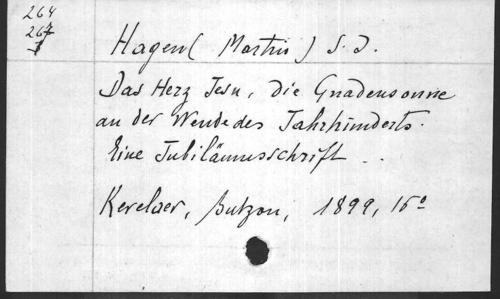 264
267
Hagen (Martin) S. J.
Das Herz Jesu, die Gnadensonne
an der Wende des Jahrhunderts.
Eine Jubiläumsschrift ..
Kevelaer, Butzon, 1899, 16°